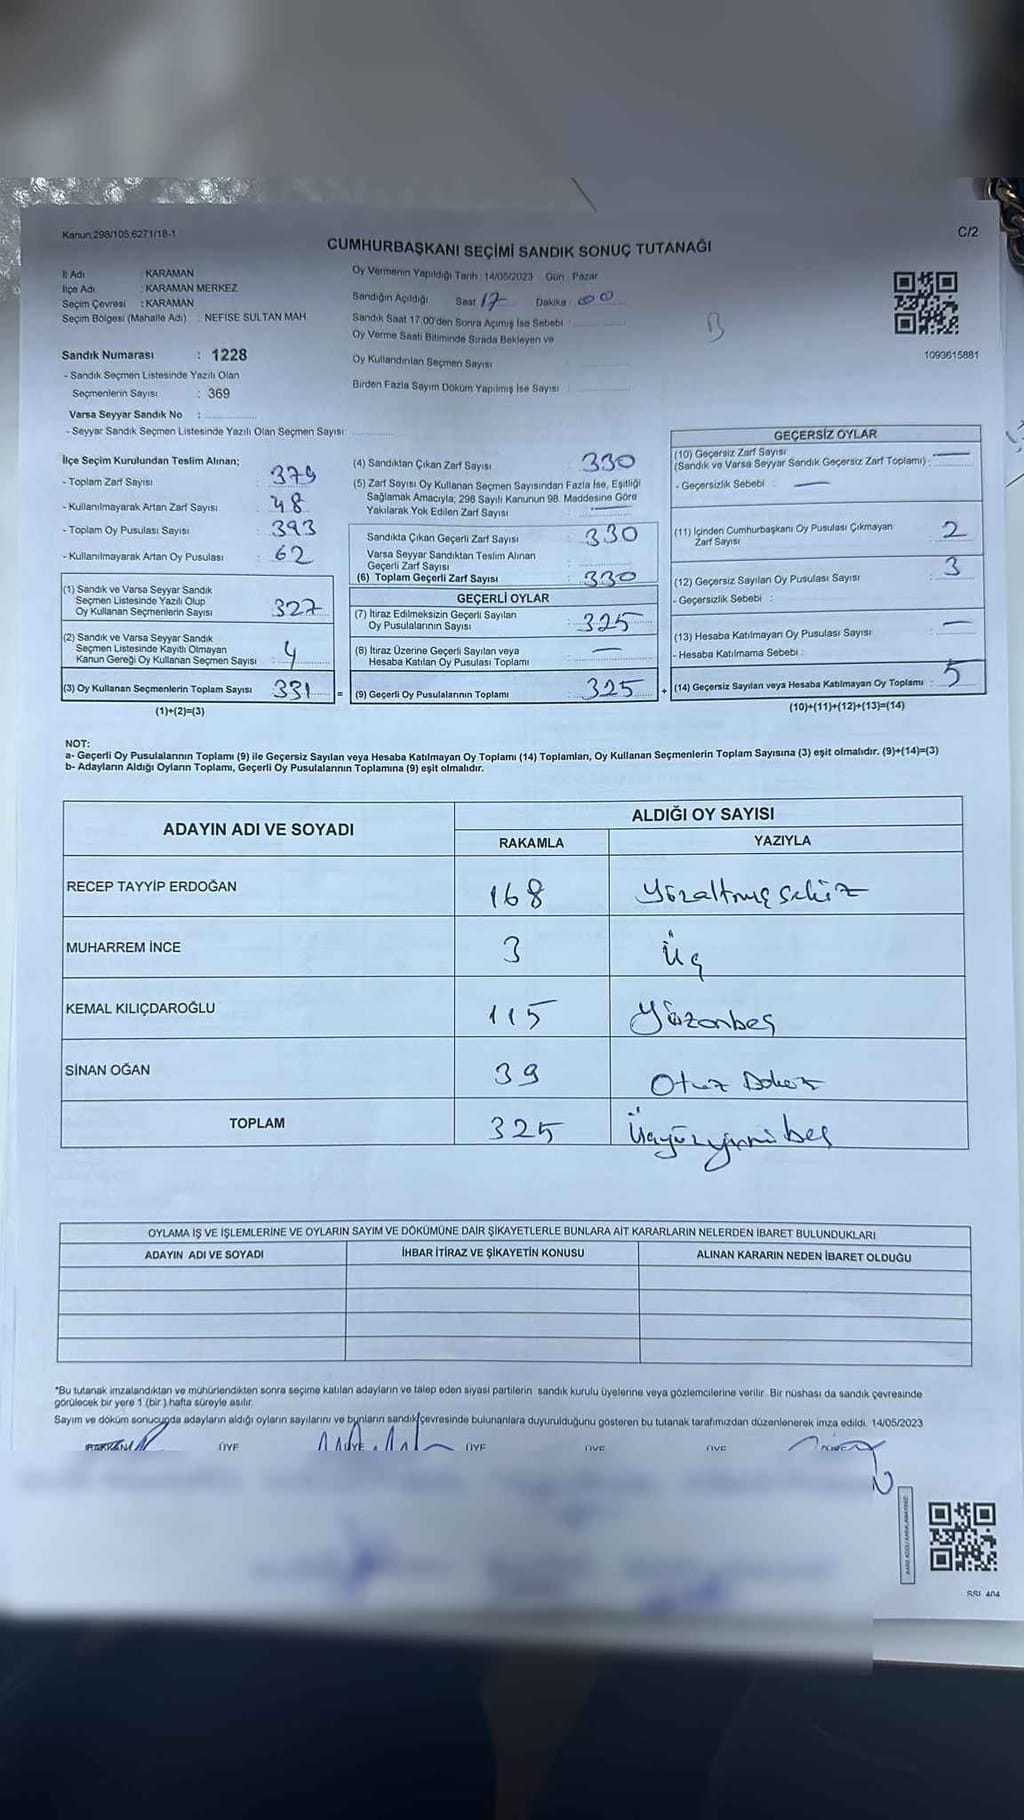 Kanun.298/105,6271/18-1
C/2
CUMHURBAŞKANI SEÇİMİ SANDIK SONUÇ TUTANAĞI
İl Adı : KARAMAN
İlçe Adı : KARAMAN MERKEZ
Seçim Çevresi : KARAMAN
Seçim Bölgesi (Mahalle Adı) : NEFİSE SULTAN MAH.
Sandık Numarası : 1228
- Sandık Seçmen Listesinde Yazılı Olan
Seçmenlerin Sayısı : 369
Varsa Seyyar Sandık No :
- Seyyar Sandık Seçmen Listesinde Yazılı Olan Seçmen Sayısı:
Oy Vermenin Yapıldığı Tarih : 14/05/2023 Gün : Pazar
Sandığın Açıldığı Saat 17 Dakika 00
Sandık Saat 17:00'den Sonra Açımış İse Sebebi :
Oy Verme Saati Bitiminde Sırada Bekleyen ve
Oy Kullandırılan Seçmen Sayısı :
Birden Fazla Sayım Döküm Yapılmış İse Sayısı :
1093615881
İlçe Seçim Kurulundan Teslim Alınan;
- Toplam Zarf Sayısı : 379
- Kullanılmayarak Artan Zarf Sayısı : 48
- Toplam Oy Pusulası Sayısı : 393
- Kullanılmayarak Artan Oy Pusulası : 62
(1) Sandık ve Varsa Seyyar Sandık
Seçmen Listesinde Yazılı Olup
Oy Kullanan Seçmenlerin Sayısı : 327
(2) Sandık ve Varsa Seyyar Sandık
Seçmen Listesinde Kayıtlı Olmayan
Kanun Gereği Oy Kullanan Seçmen Sayısı : 4
(3) Oy Kullanan Seçmenlerin Toplam Sayısı : 331 =
(1)+(2)=(3)
(4) Sandıktan Çıkan Zarf Sayısı : 330
(5) Zarf Sayısı Oy Kullanan Seçmen Sayısından Fazla İse, Eşitliği
Sağlamak Amacıyla; 298 Sayılı Kanunun 98. Maddesine Göre
Yakılarak Yok Edilen Zarf Sayısı : —
Sandıkta Çıkan Geçerli Zarf Sayısı : 330
Varsa Seyyar Sandıktan Teslim Alınan
Geçerli Zarf Sayısı :
(6) Toplam Geçerli Zarf Sayısı : 330
GEÇERLİ OYLAR
(7) İtiraz Edilmeksizin Geçerli Sayılan
Oy Pusulalarının Sayısı : 325
(8) İtiraz Üzerine Geçerli Sayılan veya
Hesaba Katılan Oy Pusulası Toplamı : —
(9) Geçerli Oy Pusulalarının Toplamı : 325 +
GEÇERSİZ OYLAR
(10) Geçersiz Zarf Sayısı
(Sandık ve Varsa Seyyar Sandık Geçersiz Zarf Toplamı) : —
- Geçersizlik Sebebi : —
(11) İçinden Cumhurbaşkanı Oy Pusulası Çıkmayan
Zarf Sayısı : 2
(12) Geçersiz Sayılan Oy Pusulası Sayısı : 3
- Geçersizlik Sebebi :
(13) Hesaba Katılmayan Oy Pusulası Sayısı : —
- Hesaba Katılmama Sebebi :
(14) Geçersiz Sayılan veya Hesaba Katılmayan Oy Toplamı : 5
(10)+(11)+(12)+(13)=(14)
NOT:
a- Geçerli Oy Pusulalarının Toplamı (9) ile Geçersiz Sayılan veya Hesaba Katılmayan Oy Toplamı (14) Toplamları, Oy Kullanan Seçmenlerin Toplam Sayısına (3) eşit olmalıdır. (9)+(14)=(3)
b- Adayların Aldığı Oyların Toplamı, Geçerli Oy Pusulalarının Toplamına (9) eşit olmalıdır.
ADAYIN ADI VE SOYADI
ALDIĞI OY SAYISI
RAKAMLA YAZIYLA
RECEP TAYYİP ERDOĞAN 168 Yüzaltmış sekiz
MUHARREM İNCE 3 Üç
KEMAL KILIÇDAROĞLU 115 Yüzonbeş
SİNAN OĞAN 39 Otuz Dokuz
TOPLAM 325 Üçyüzyirmi beş
OYLAMA İŞ VE İŞLEMLERİNE VE OYLARIN SAYIM VE DÖKÜMÜNE DAİR ŞİKAYETLERLE BUNLARA AİT KARARLARIN NELERDEN İBARET BULUNDUKLARI
ADAYIN ADI VE SOYADI İHBAR İTİRAZ VE ŞİKAYETİN KONUSU ALINAN KARARIN NEDEN İBARET OLDUĞU
*Bu tutanak imzalandıktan ve mühürlendikten sonra seçime katılan adayların ve talep eden siyasi partilerin sandık kurulu üyelerine veya gözlemcilerine verilir. Bir nüshası da sandık çevresinde
görülecek bir yere 1 (bir) hafta süreyle asılır.
Sayım ve döküm sonucunda adayların aldığı oyların sayılarını ve bunların sandık çevresinde bulunanlara duyurulduğunu gösteren bu tutanak tarafımızdan düzenlenerek imza edildi. 14/05/2023
ÜYE ÜYE ÜYE ÜYE ÜYE